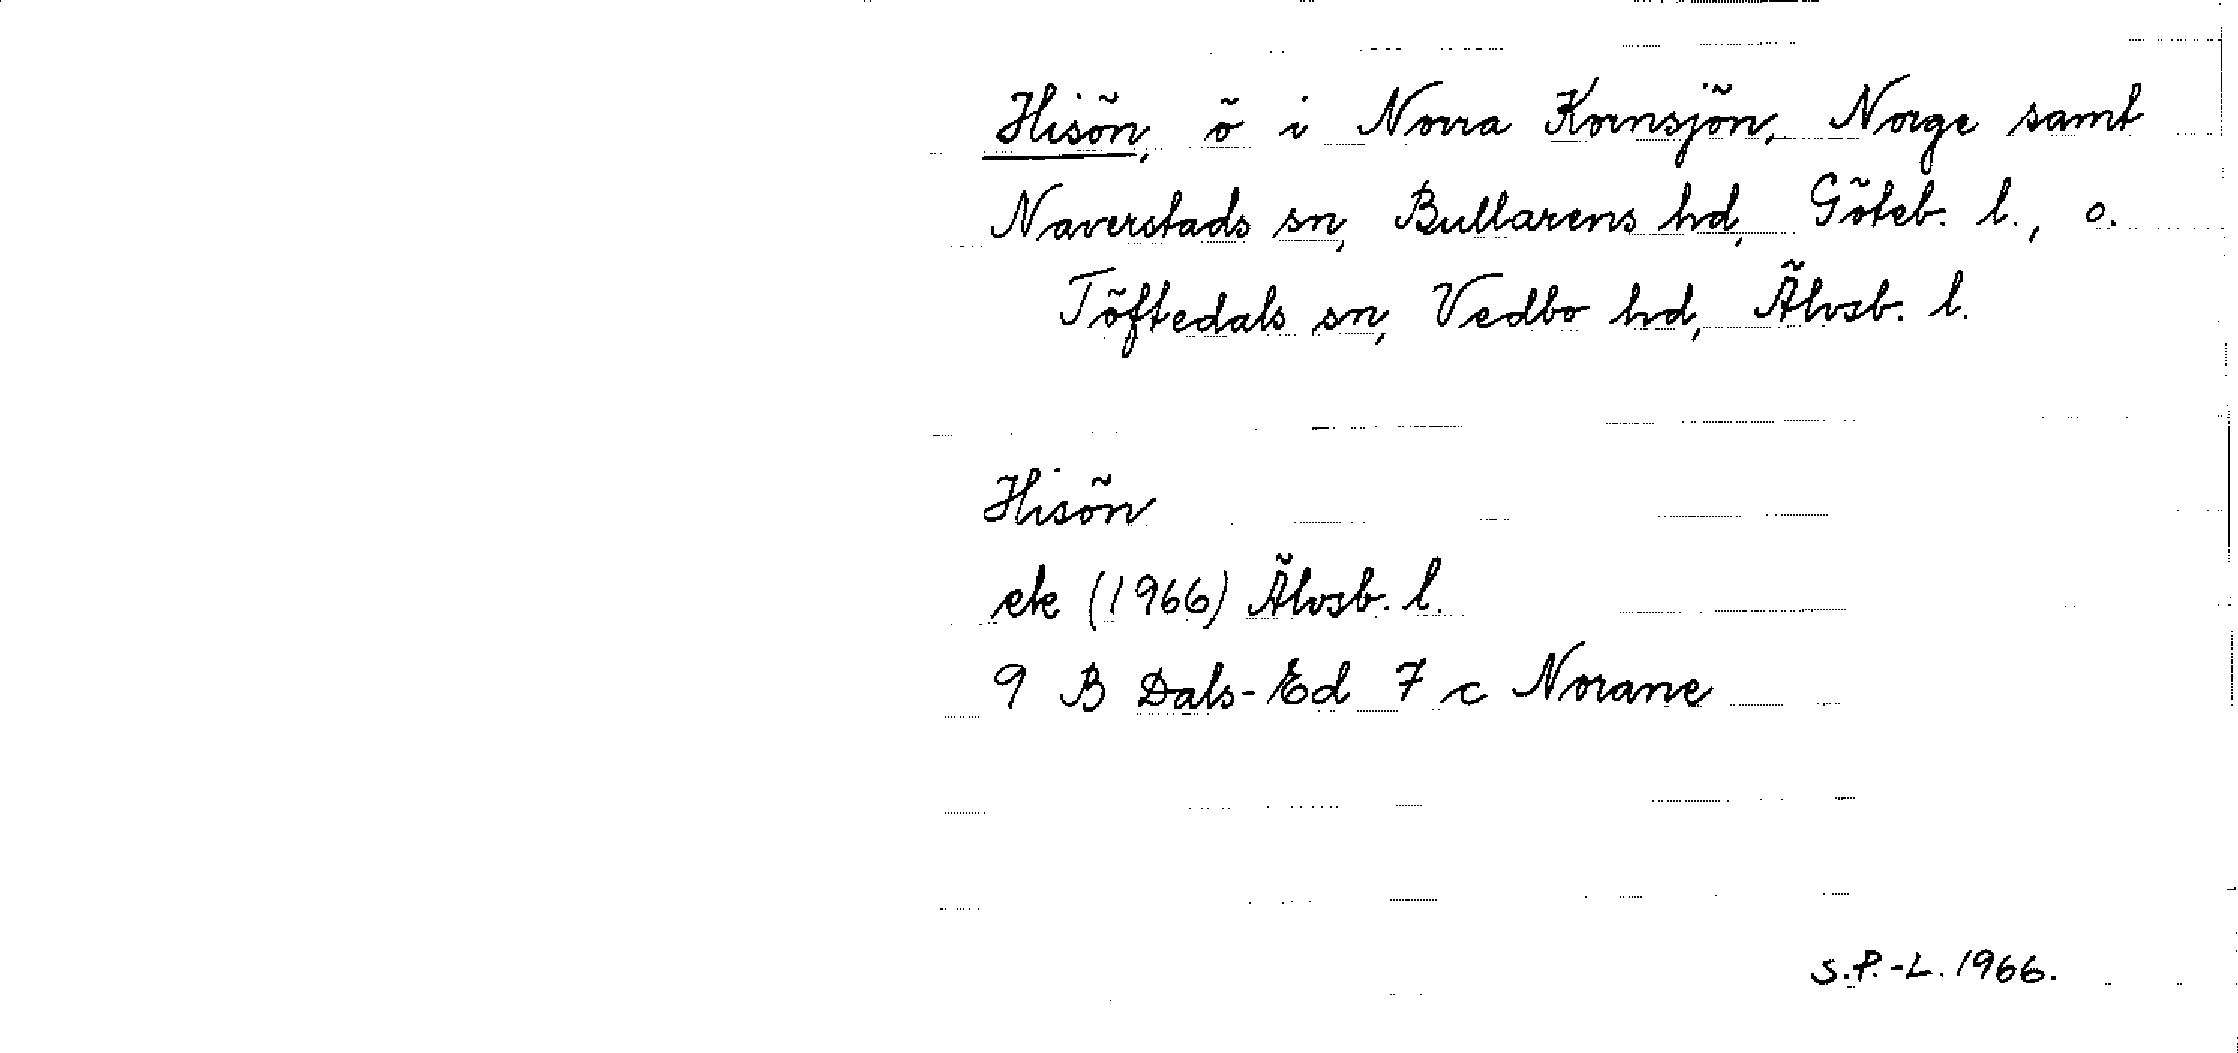 Hisön, ö i Norra Kornsjön, Norge samt
Naverstads sn, Bullarens hd, Göteb. l., o.
Töftedals sn, Vedbo hd, Älvsb. l.
Hisön
ek (1966) Älvsb. l.
9 B Dals-Ed 7 c Norane
S.P.-L. 1966.